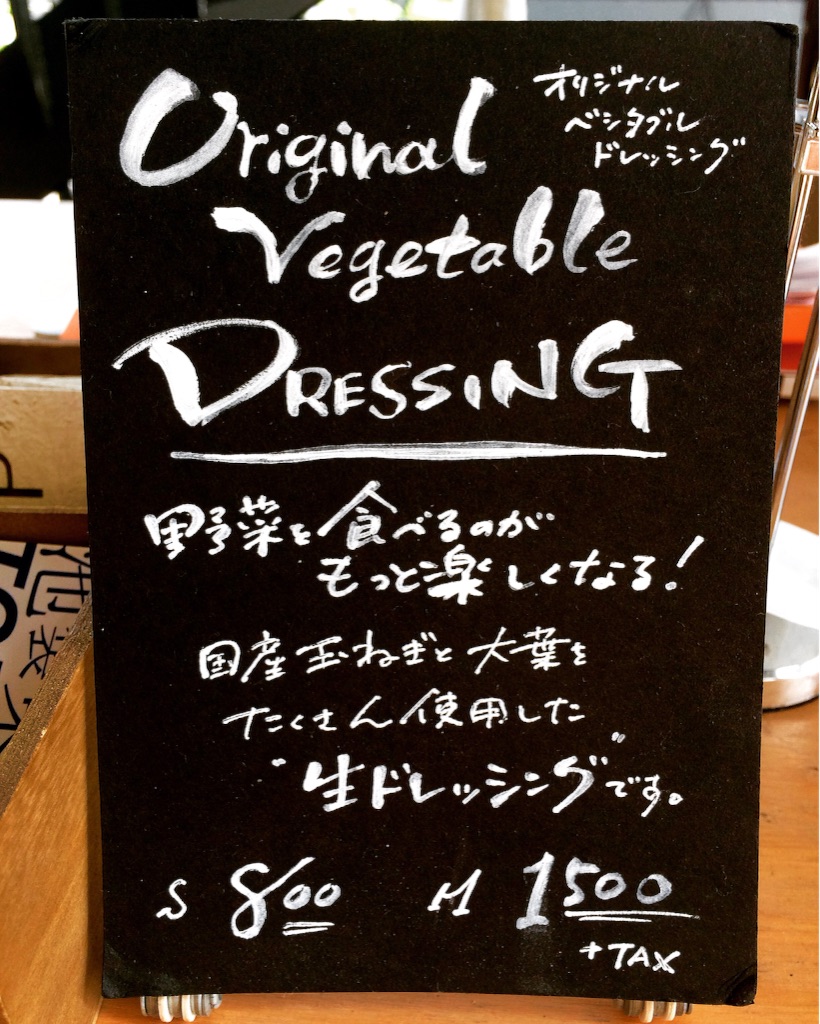 Original
オリジナル
ベシタブル
ドレッシング
Vegetable
DRESSING
野菜を食べるのが
もっと楽しくなる!
国産玉ねぎと大葉を
たくさん使用した
"生ドレッシング"です。
S 800 M 1500
+TAX